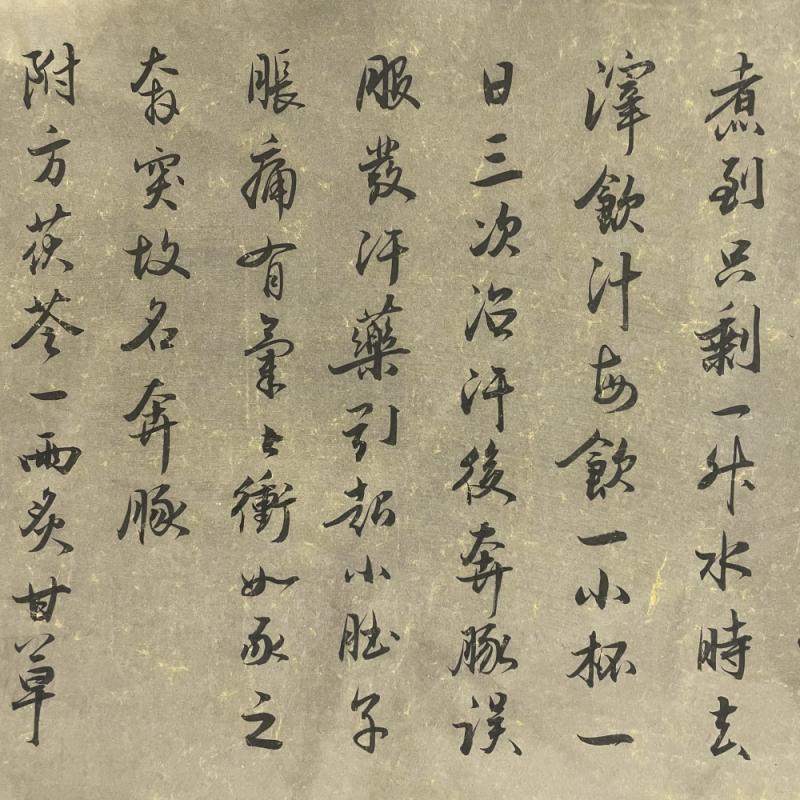 煮到只剩一升水時去
滓飲汁每飲一小杯一
日三次治汗後奔豚誤
服發汗藥引起小肚子
脹痛有氣上衝如豕之
奔突故名奔豚
附方茯苓一兩炙甘草